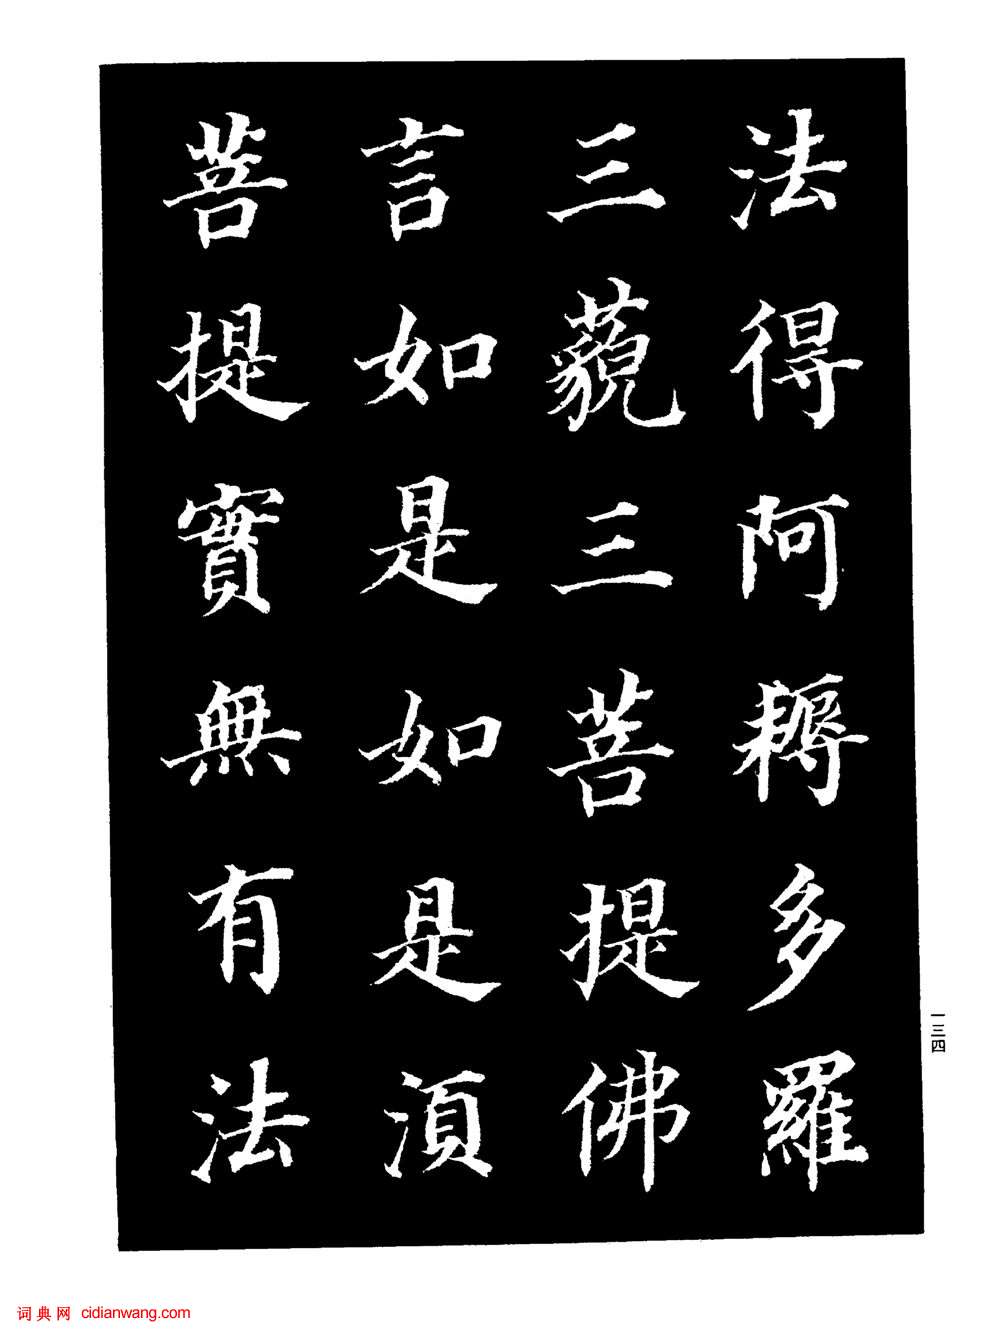 法得阿耨多羅
三藐三菩提佛
言如是如是湏
菩提實無有法
一三四
词典网 cidianwang.com